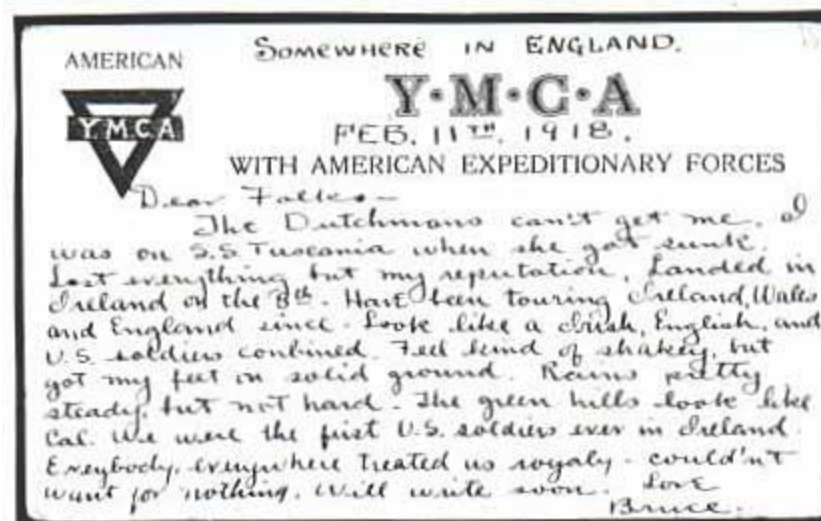 SOMEWHERE IN ENGLAND.
AMERICAN
Y·M·C·A
YMCA
FEB. 11TH, 1918.
WITH AMERICAN EXPEDITIONARY FORCES
Dear Folks—
The Dutchmans can't get me. I
was on S.S. Tuscania when she got sunk.
Lost everything but my reputation. Landed in
Ireland on the 8th. Have been touring Ireland, Wales
and England since. Look like a Irish, English, and
U.S. soldiers combined. Feel kind of shakey, but
got my feet on solid ground. Rains pretty
steady, but not hard. The green hills look like
Cal. We were the first U.S. soldiers ever in Ireland.
Exeybody, everywhere treated us royaly - could'nt
want for nothing. Will write soon. Love
Bruce.